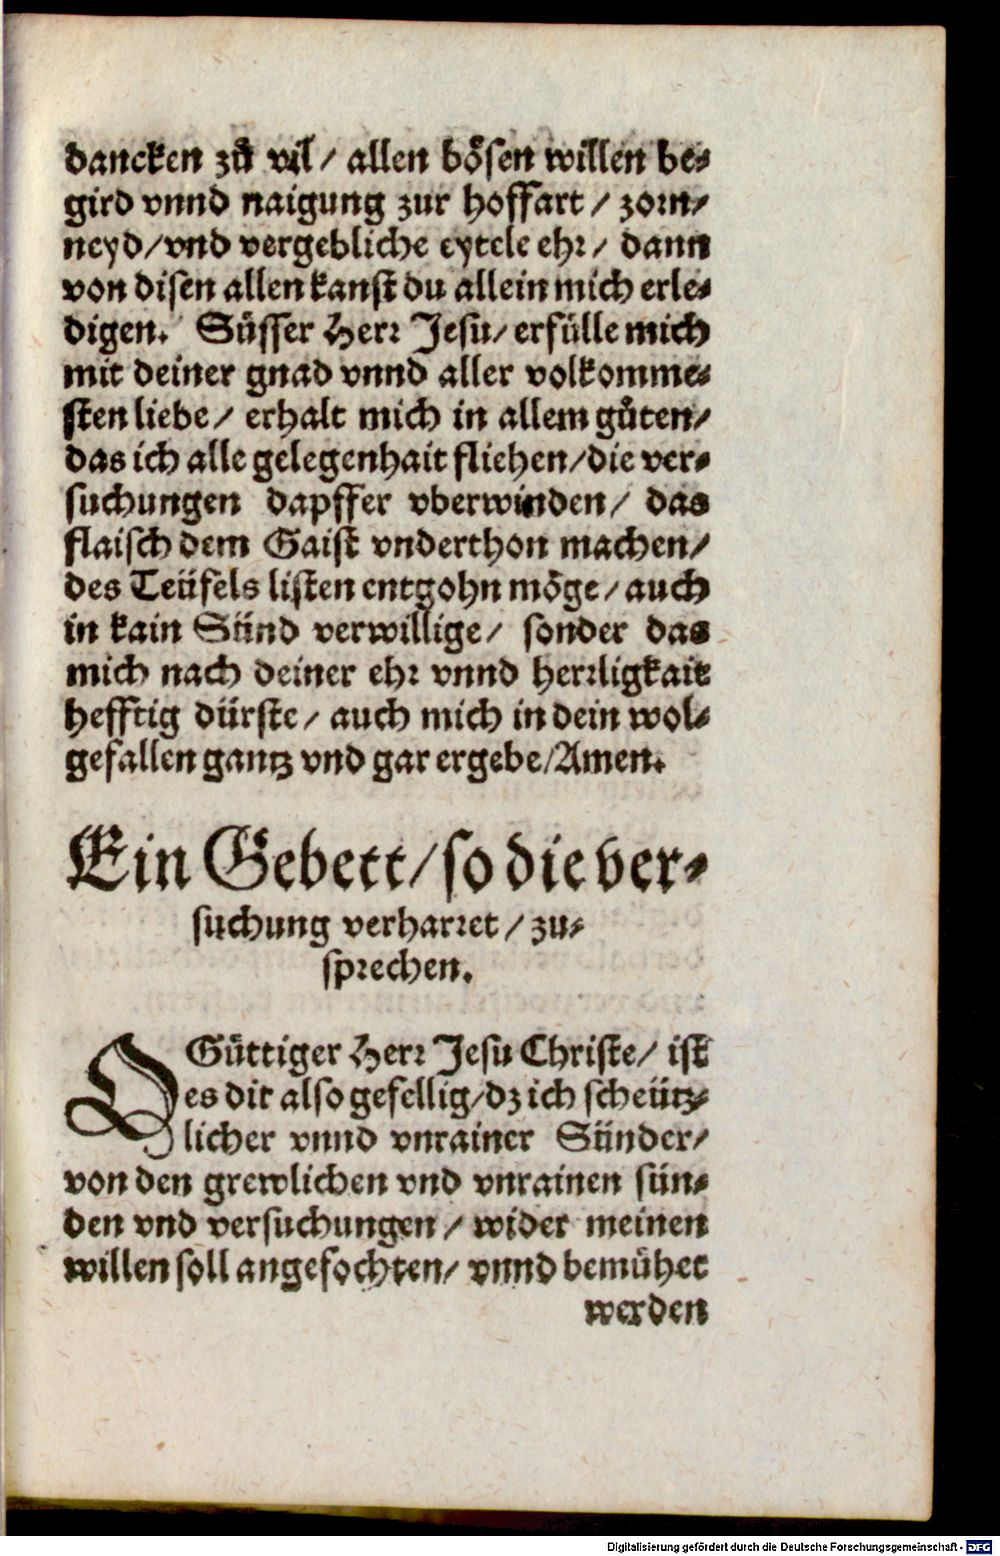 dancken zů vil / allen bösen willen be⸗
gird vnnd naigung zur hoffart / zorn/
neyd/vnd vergebliche eytele ehr/ dann
von disen allen kanst du allein mich erle⸗
digen. Süsser Herr Jesu/ erfülle mich
mit deiner gnad vnnd aller volkomme⸗
sten liebe/ erhalt mich in allem gůten/
das ich alle gelegenhait fliehen/die ver⸗
suchungen dapffer vberwinden/ das
flaisch dem Gaist vnderthon machen/
des Teüfels listen entgohn möge/ auch
in kain Sünd verwillige/ sonder das
mich nach deiner ehr vnnd herrligkait
hefftig dürste/ auch mich in dein wol⸗
gefallen gantz vnd gar ergebe/Amen.
Ein Gebett/ so die ver⸗
suchung verharret / zu⸗
sprechen.
O Güttiger Herr Jesu Christe/ ist
es dir also gefellig/dz ich scheütz⸗
licher vnnd vnrainer Sünder/
von den grewlichen vnd vnrainen sün⸗
den vnd versuchungen / wider meinen
willen soll angefochten/ vnnd bemühet
werden
Digitalisierung gefördert durch die Deutsche Forschungsgemeinschaft - DFG